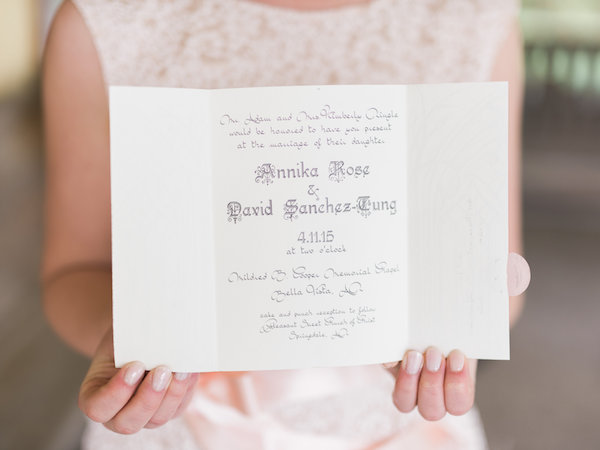 Mr. Adam and Mrs. Kimberly Pringle
would be honored to have you present
at the marriage of their daughter
Annika Rose
&
David Sanchez-Tung
4.11.15
at two o'clock
Mildred B. Cooper Memorial Chapel
Bella Vista, AR
cake and punch reception to follow
Pleasant Street Church of Christ
Springdale, AR